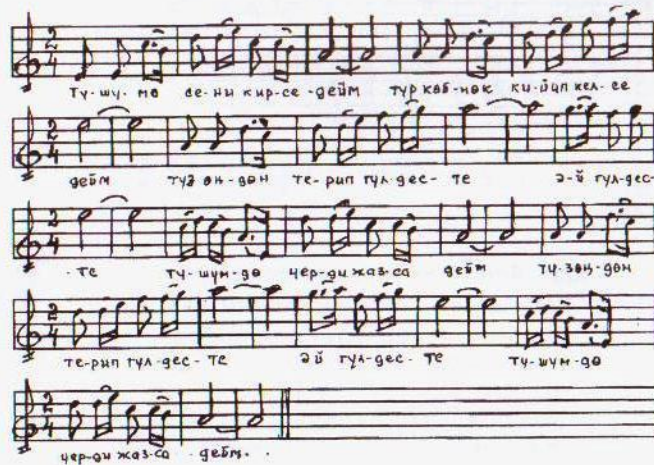 Tү-шү-мө се-ни кир-се-дейм түр көй-нөк ки-йип кел-се
дейм түз өң-дөн те-рип гүл-дес-те э-й гүл-дес-
-те тү-шүм-дө чер-ди жаз-са дейм тү-зөң-дөн
те-рип гүл-дес-те эй гүл-дес-те тү-шүм-дө
чер-ди жаз-са дейм.